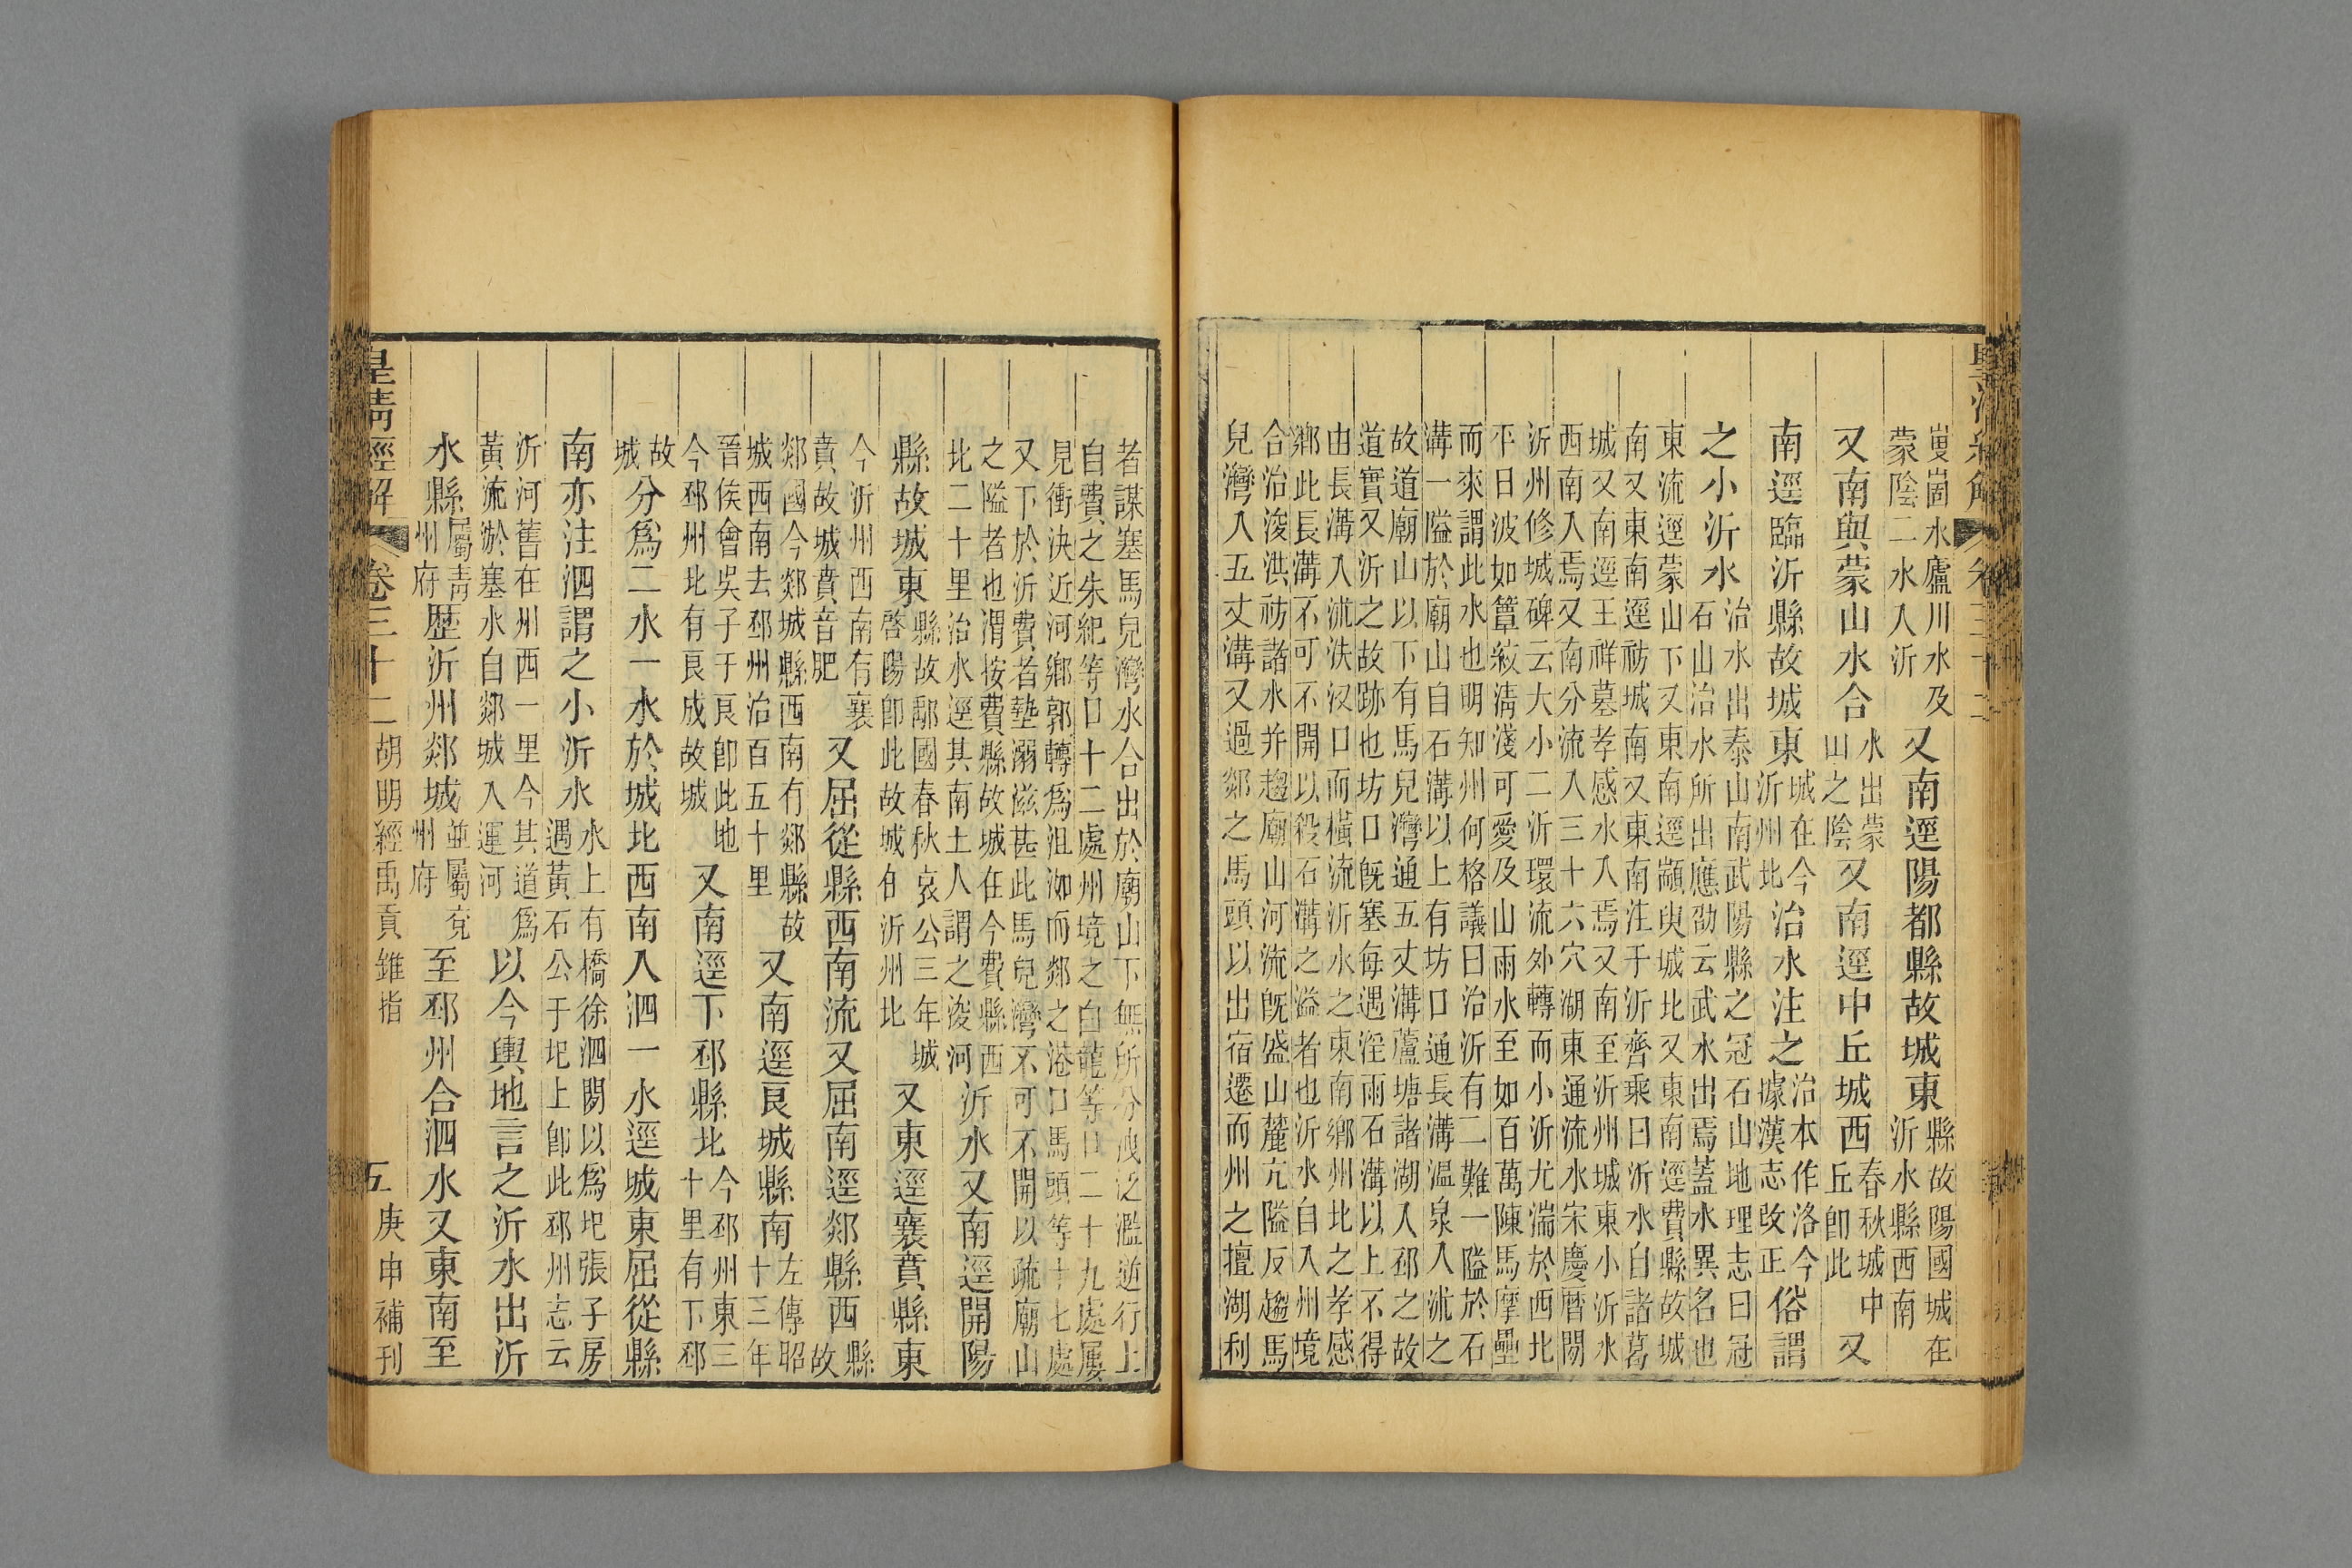 皇清經解 卷三十二
嵏崮水廬川水及
蒙陰二水入沂
又南逕陽都縣故城東
縣故陽國城在
沂水縣西南
又南與蒙山水合
水出蒙
山之陰
又南逕中丘城西
春秋城中
丘即此
又
南逕臨沂縣故城東
城在今
沂州北
治水注之
治本作洛今
據漢志改正
俗謂
之小沂水
治水出泰山南武陽縣之冠石山地理志曰冠
石山治水所出應劭云武水出焉蓋水異名也
東流逕蒙山下又東南逕顓臾城北又東南逕費縣故城
南又東南逕祊城南又東南注于沂齊乘曰沂水自諸葛
城又南逕王祥墓孝感水入焉又南至沂州城東小沂水
西南入焉又南分流入三十六穴湖東通流水宋慶曆閒
沂州修城碑云大小二沂環流外轉而小沂尤湍於西北
平日波如簟紋淸淺可愛及山雨水至如百萬陳馬摩壘
而來謂此水也明知州何格議曰治沂有二難一隘於石
溝一隘於廟山自石溝以上有坊口通長溝溫泉入沭之
故道廟山以下有馬兒灣通五丈溝蘆塘諸湖入邳之故
道實又沂之故跡也坊口旣塞每遇淫雨石溝以上不得
由長溝入沭泆沒口而橫流沂水之東南鄉州北之孝感
鄉此長溝不可不開以殺石溝之溢者也沂水自入州境
合治浚洪祊諸水并趨廟山河流旣盛山麓亢隘反趨馬
兒灣入五丈溝又過郯之馬頭以出宿遷而州之擅湖利
者謀塞馬兒灣水合出於廟山下無所分洩泛濫逆行上
自費之朱紀等口十二處州境之白龍等口二十九處屢
見衝決近河鄉郭轉爲沮洳而郯之港口馬頭等十七處
又下於沂費者墊溺滋甚此馬兒灣不可不開以疏廟山
之隘者也渭按費縣故城在今費縣西
北二十里治水逕其南土人謂之浚河
沂水又南逕開陽
縣故城東
縣故鄅國春秋哀公三年城
啓陽卽此故城在沂州北
又東逕襄賁縣東
今沂州西南有襄
賁故城賁音肥
又屈從縣西南流又屈南逕郯縣西
縣
故
郯國今郯城縣西南有郯縣故
城西南去邳州治百五十里
又南逕良城縣南
左傳昭
十三年
晉侯會吳子于良卽此地
今邳州北有良成故城
又南逕下邳縣北
今邳州東三
十里有下邳
故
城
分爲二水一水於城北西南入泗一水逕城東屈從縣
南亦注泗謂之小沂水
水上有橋徐泗閒以爲圯張子房
遇黃石公于圯上卽此邳州志云
沂河舊在州西一里今其道爲
黃流淤塞水自郯城入運河
以今輿地言之沂水出沂
水縣
屬靑
州府
歷沂州郯城
並屬兗
州府
至邳州合泗水又東南至
皇淸經解 卷三十二 胡明經禹貢錐指 五 庚申補刊